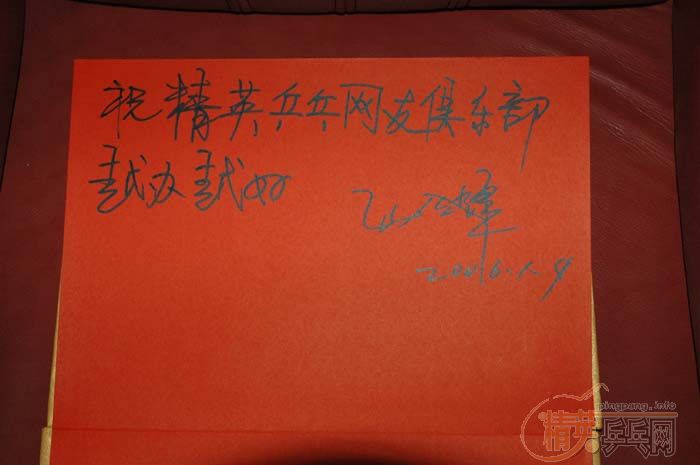 祝精英乒乓网友俱乐部
越办越好
2006.1.9
pingpang.info
精英乒乓网